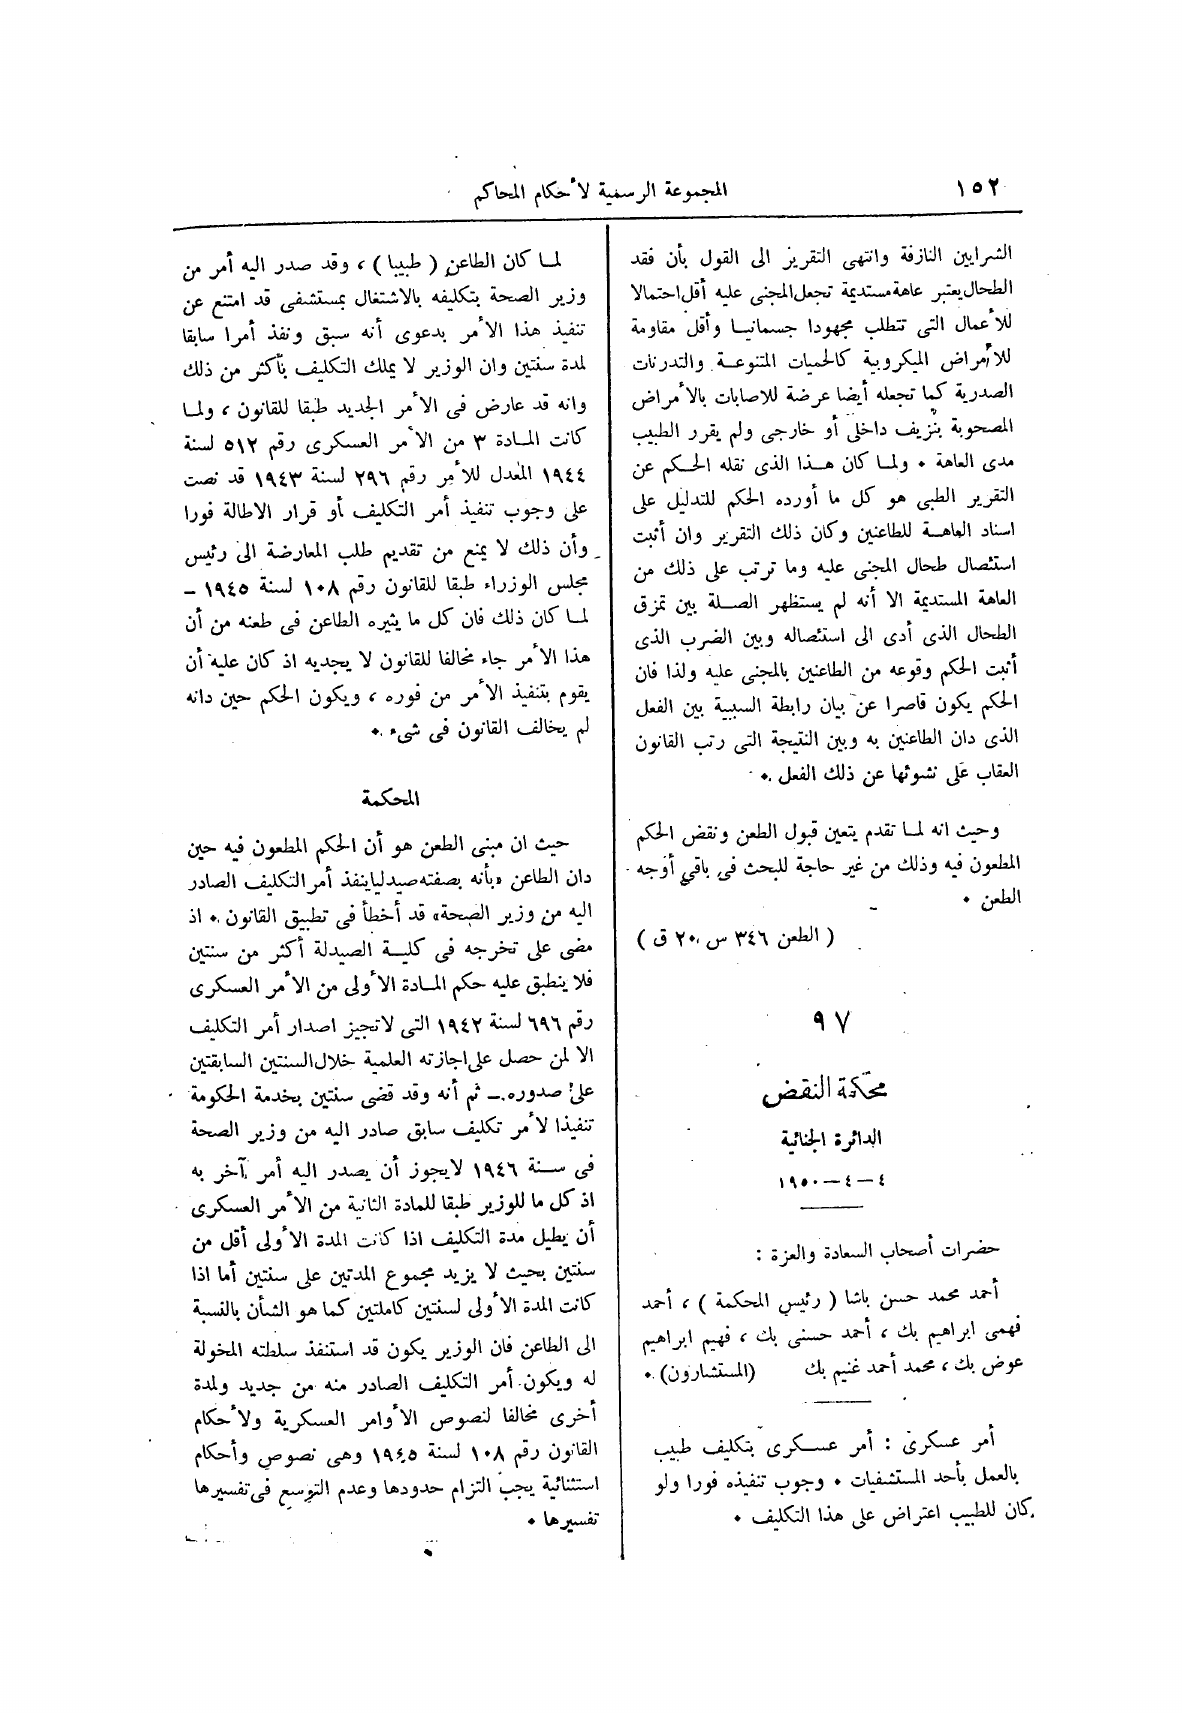 ١٥٢
المجموعة الرسمية لأحكام المحاكم
الشرايين النازفة وانتهى التقرير الى القول بأن فقد
الطحال يعتبر عاهة مستديمة تجعل المجنى عليه أقل احتمالا
للأعمال التى تتطلب مجهودا جسمانيا وأقل مقاومة
للأمراض الميكروبية كالحميات المتنوعة والتدرنات
الصدرية كما تجعله أيضا عرضة للاصابات بالأمراض
المصحوبة بنزيف داخلى أو خارجى ولم يقرر الطبيب
مدى العاهة • ولما كان هذا الذى نقله الحكم عن
التقرير الطبى هو كل ما أورده الحكم للتدليل على
اسناد العاهة للطاعنين وكان ذلك التقرير وان أثبت
استئصال طحال المجنى عليه وما ترتب على ذلك من
العاهة المستديمة الا أنه لم يستظهر الصلة بين تمزق
الطحال الذى أدى الى استئصاله وبين الضرب الذى
أثبت الحكم وقوعه من الطاعنين بالمجنى عليه ولذا فان
الحكم يكون قاصرا عن بيان رابطة السببية بين الفعل
الذى دان الطاعنين به وبين النتيجة التى رتب القانون
العقاب على نشوئها عن ذلك الفعل •
وحيث انه لما تقدم يتعين قبول الطعن ونقض الحكم
المطعون فيه وذلك من غير حاجة للبحث فى باقى أوجه
الطعن •
( الطعن ٣٤٦ س ٢٠ ق )
٩٧
محكمة النقض
الدائرة الجنائية
٤ – ٤ – ١٩٥٠
حضرات أصحاب السعادة والعزة :
أحمد محمد حسن باشا ( رئيس المحكمة ) ، أحمد
فهمى ابراهيم بك ، أحمد حسنى بك ، فهيم ابراهيم
عوض بك ، محمد أحمد غنيم بك (المستشارون) •
أمر عسكرى : أمر عسكرى بتكليف طبيب
بالعمل بأحد المستشفيات • وجوب تنفيذه فورا ولو
كان للطبيب اعتراض على هذا التكليف •
لما كان الطاعن ( طبيبا ) ، وقد صدر اليه أمر من
وزير الصحة بتكليفه بالاشتغال بمستشفى قد امتنع عن
تنفيذ هذا الأمر بدعوى أنه سبق ونفذ أمرا سابقا
لمدة سنتين وان الوزير لا يملك التكليف بأكثر من ذلك
وانه قد عارض فى الأمر الجديد طبقا للقانون ، ولما
كانت المادة ٣ من الأمر العسكرى رقم ٥١٢ لسنة
١٩٤٤ المعدل للأمر رقم ٢٩٦ لسنة ١٩٤٣ قد نصت
على وجوب تنفيذ أمر التكليف أو قرار الاطالة فورا
وأن ذلك لا يمنع من تقديم طلب المعارضة الى رئيس
مجلس الوزراء طبقا للقانون رقم ١٠٨ لسنة ١٩٤٥ –
لما كان ذلك فان كل ما يثيره الطاعن فى طعنه من أن
هذا الأمر جاء مخالفا للقانون لا يجديه اذ كان عليه أن
يقوم بتنفيذ الأمر من فوره ، ويكون الحكم حين دانه
لم يخالف القانون فى شىء •
المحكمة
حيث ان مبنى الطعن هو أن الحكم المطعون فيه حين
دان الطاعن «بأنه بصفته صيدليا ينفذ أمر التكليف الصادر
اليه من وزير الصحة» قد أخطأ فى تطبيق القانون • اذ
مضى على تخرجه فى كلية الصيدلة أكثر من سنتين
فلا ينطبق عليه حكم المادة الأولى من الأمر العسكرى
رقم ٦٩٦ لسنة ١٩٤٢ التى لا تجيز اصدار أمر التكليف
الا لمن حصل على اجازته العلمية خلال السنتين السابقتين
على صدوره – ثم أنه وقد قضى سنتين بخدمة الحكومة
تنفيذا لأمر تكليف سابق صادر اليه من وزير الصحة
فى سنة ١٩٤٦ لا يجوز أن يصدر اليه أمر آخر به
اذ كل ما للوزير طبقا للمادة الثانية من الأمر العسكرى
أن يطيل مدة التكليف اذا كانت المدة الأولى أقل من
سنتين بحيث لا يزيد مجموع المدتين على سنتين أما اذا
كانت المدة الأولى لسنتين كاملتين كما هو الشأن بالنسبة
الى الطاعن فان الوزير يكون قد استنفذ سلطته المخولة
له ويكون أمر التكليف الصادر منه من جديد ولمدة
أخرى مخالفا لنصوص الأوامر العسكرية ولأحكام
القانون رقم ١٠٨ لسنة ١٩٤٥ وهى نصوص وأحكام
استثنائية يجب التزام حدودها وعدم التوسع فى تفسيرها
تفسيرها •